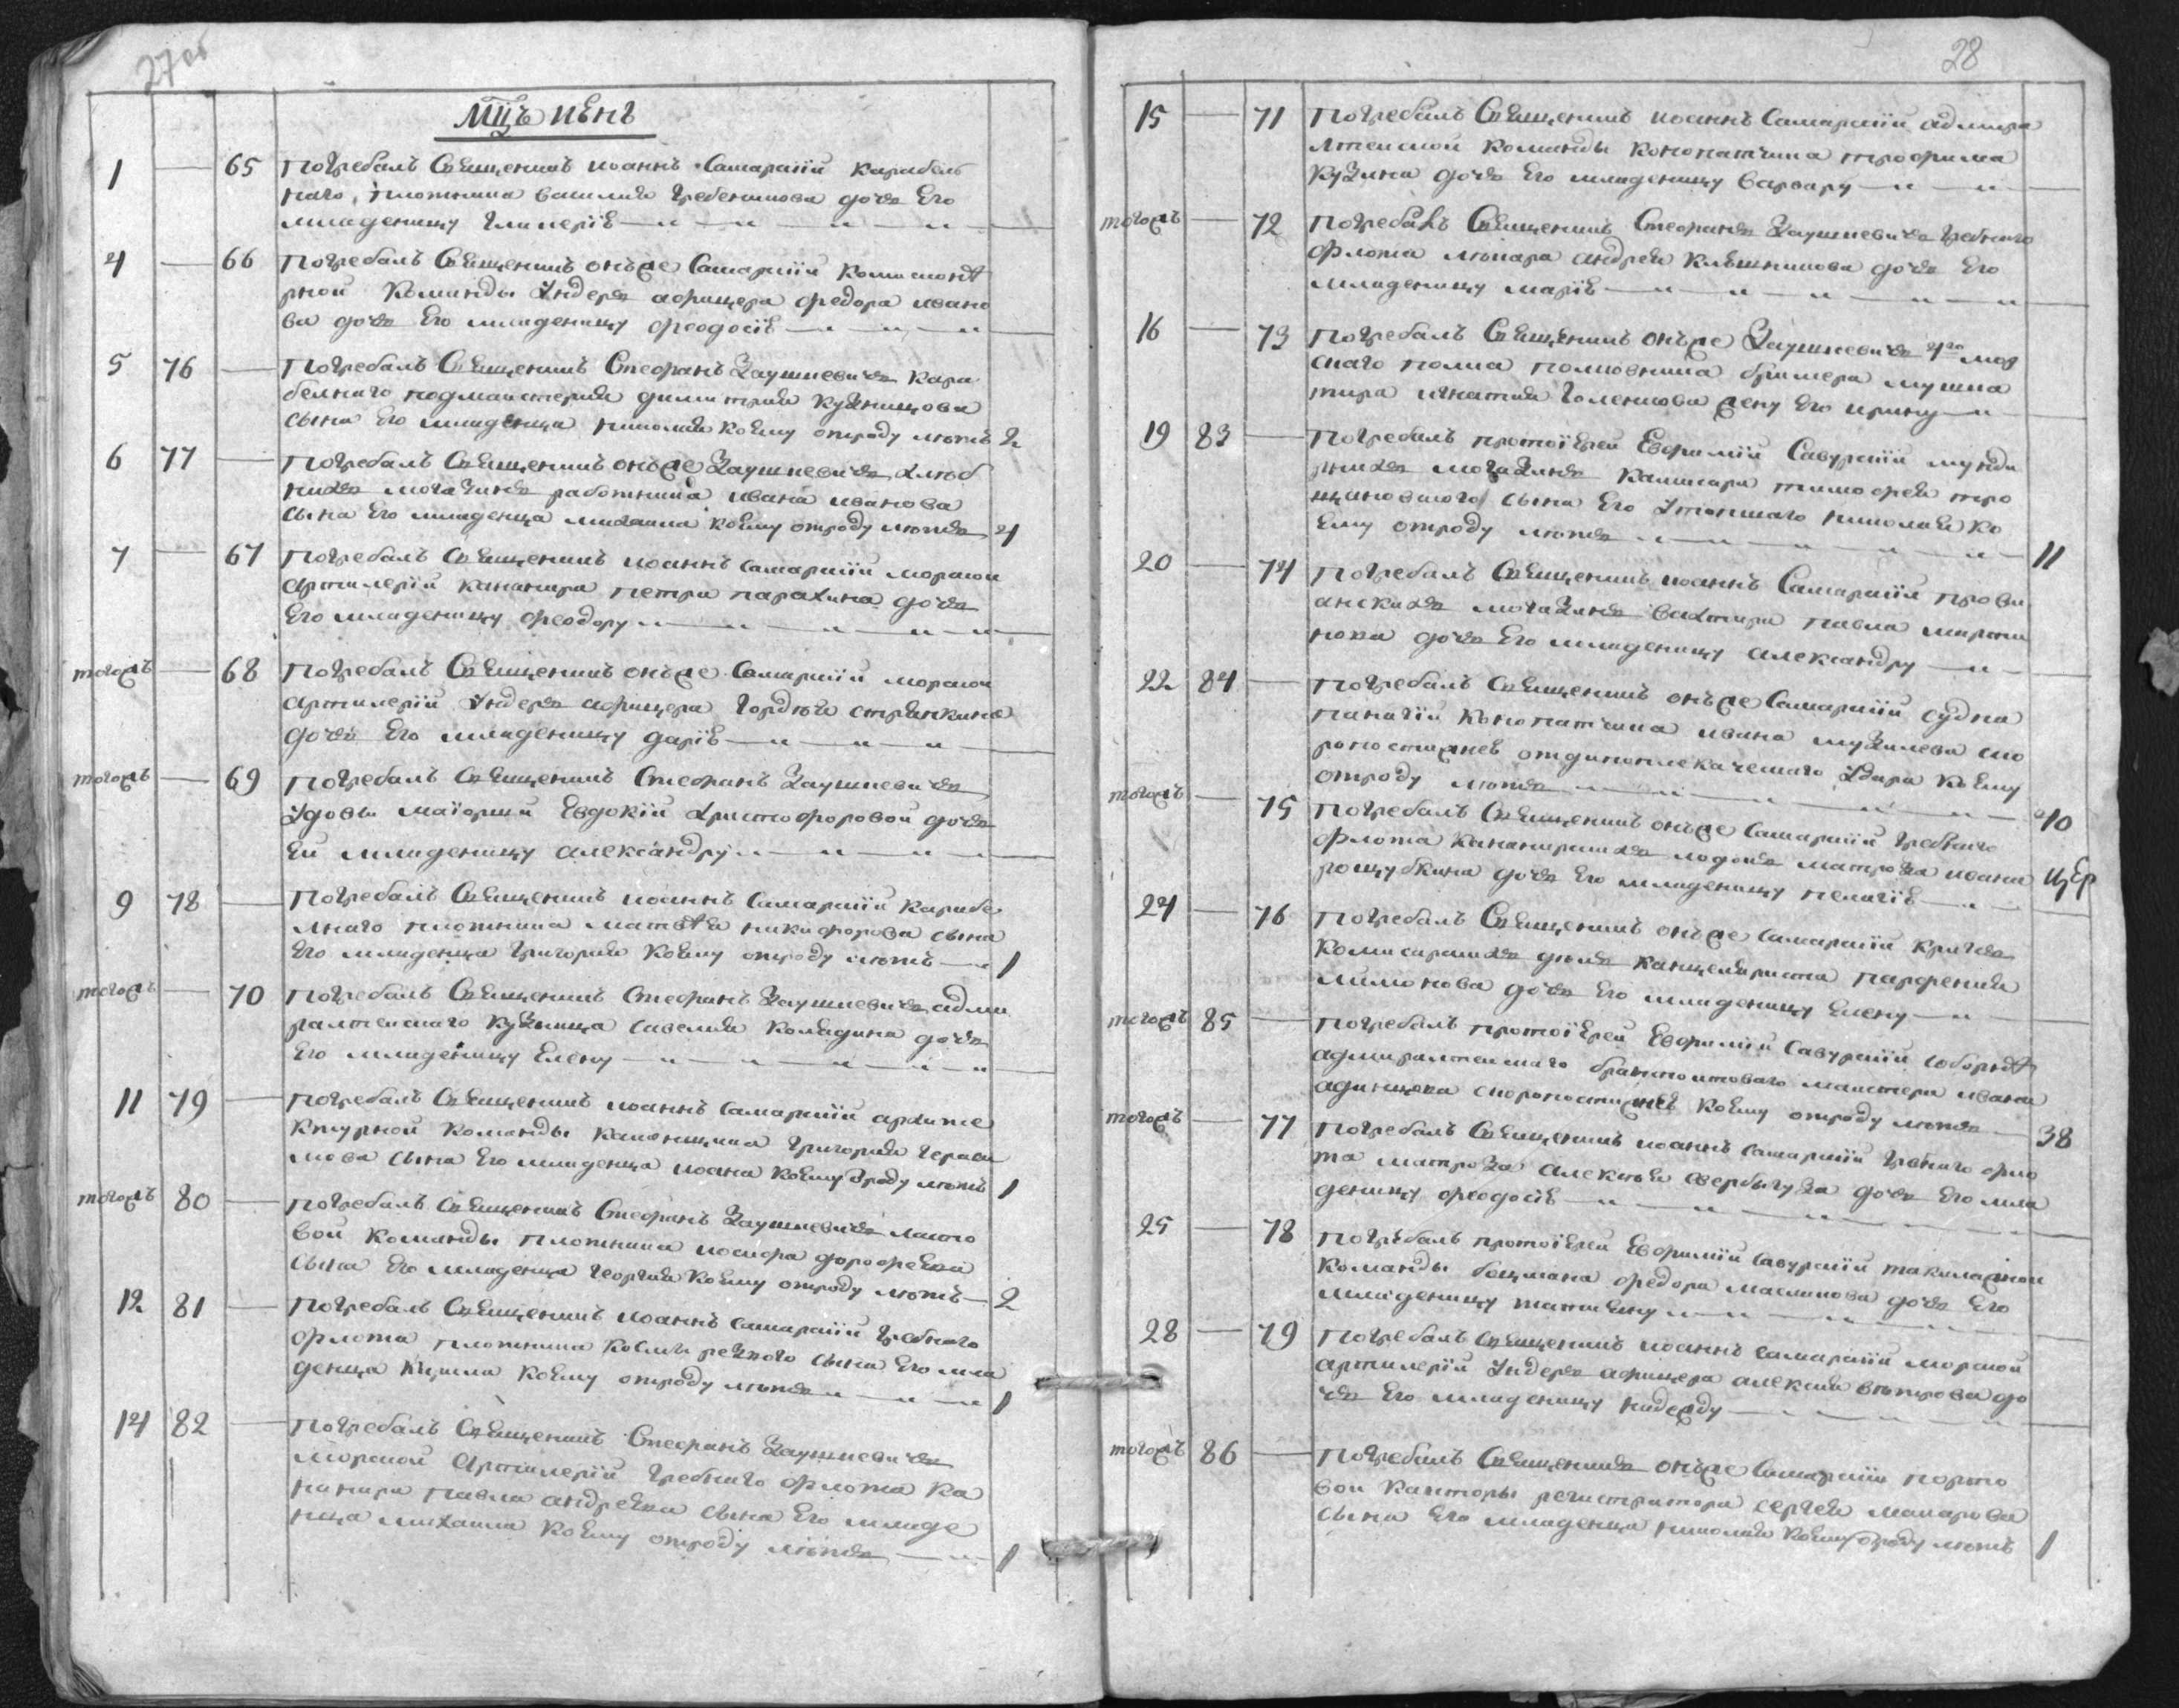 27об
МЦЪ ИЮНЬ
1 — 65 Погребалъ Священникъ иоаннъ Самарскiй карабель
наго плотника василия Гребенникова дочь Его
младеницу Гликерiю
4 — 66 Погребалъ Священникъ онъже Самарскiй
рной команды Ундеръ афицера федора ивано
ва дочь Его младеницу феодосiю
5 76 — Погребалъ Священникъ Стефанъ Заушкевичъ кара
белнаго подмастерия димитрия кузницова
сына Его младенца николая коему отроду летъ 2
6 77 — Погребалъ Священникъ онъже Заушкевичъ хлеб
ныхъ могазинъ работника ивана иванова
сына Его младенца михаила коему отроду летъ 4
7 — 67 Погребалъ Священникъ иоаннъ самарскiй морской
артилерiи кананира петра парахина дочь
Его младеницу феодору
тогожъ — 68 Погребалъ Священникъ онъже Самарскiй морской
артилерiи Ундеръ афицера Гордея
дочь Его младеницу дарiю
тогожъ — 69 Погребалъ Священникъ Стефанъ Заушкевичъ
Удовы маiорши Евдокiи христофоровой дочь
Ей младеницу александру
9 78 — Погребалъ Священникъ иоаннъ Самарскiй карабе
лнаго плотника матвея никифорова сына
Его младенца Григория коему отроду летъ 1
тогожъ — 70 Погребалъ Священникъ Стефанъ Заушкевичъ адми
ралтейскаго кузнеца савелия колядина дочь
Его младеницу Елену
11 79 — Погребалъ Священникъ иоаннъ самарскiй архите
ктурной команды каменщика Григория Гераси
мова сына Его младенца иоана коему отроду летъ 1
тогожъ 80 — Погребалъ Священникъ Стефанъ Заушкевичъ масто
вой команды плотника иосифа дорофеева
сына Его младенца Георгия коему отроду летъ 2
12 81 — Погребалъ Священникъ иоаннъ самарскiй Гребнаго
флота плотника козмы резного сына Его мла
денца кирила коему отроду летъ 1
14 82 — Погребалъ Священникъ Стефанъ Заушкевичъ
Морской Артилерiи Гребнаго флота ка
нанира павла андреева сына Его младе
нца михаила коему отроду летъ 1
28
15 — 71 Погребалъ Священникъ иоаннъ Самарскiй адмира
лтейской команды конопатчика трофима
кузмина дочь Его младеницу варвару
тогожъ — 72 Погребалъ Священникъ Стефанъ Заушкевичъ Гребнаго
флота лекара андрея дочь Его
младеницу марiю
16 — 73 Погребалъ Священникъ онъже Заушкевичъ 4го мор
скаго полка полковника бримера мушка
тира игнатия Голенкова жену Его ирину
19 83 — Погребалъ протоiерей Евфимiй Савурскiй мунди
рныхъ могазинъ камисара тимофея тро
щиновскаго сына Его Утопшаго николая ко
ему отроду летъ 11
20 — 74 Погребалъ Священникъ иоаннъ Самарскiй прови
анскихъ могазинъ вахтира павла марти
нова дочь Его младеницу александру
22 84 — Погребалъ Священникъ онъже Самарскiй судна
панагiи конопатчика ивана музилева ско
ропостижнев ударa коему
отроду летъ 40
тогожъ — 75 Погребалъ Священникъ онъже Самарскiй Гребнаго
флота кананирскихъ лодокъ матроза ивана
рощубкина дочь Его младеницу пелагiю
цер
24 — 76 Погребалъ Священникъ онъже самарскiй кригсъ
комисарскихъ делъ канцеляриста парфения
лимонова дочь Его младеницу Елену
тогожъ 85 — Погребалъ протоiерей Евфимiй Савурскiй соборне
адмиралтейскаго мастера ивана
адинцова скоропостижнев коему отроду летъ 38
тогожъ — 77 Погребалъ Священникъ иоаннъ самарскiй Гребнаго фло
та матроза алексея свербигуза дочь Его мла
деницу феодосiю
25 — 78 Погребалъ протоiерей Евфимiй Савурскiй такилажной
команды боцмана федора масликова дочь Его
младеницу татияну
28 — 79 Погребалъ Священникъ иоаннъ самарскiй морской
артилерiи Ундеръ афицера алексия ветрова до
чь Его младеницу надежду
тогожъ 86 — Погребалъ Священникъ онъже Самарскiй порто
вой канторы регистратора сергея макарова
сына Его младенца николая коему отроду летъ 1